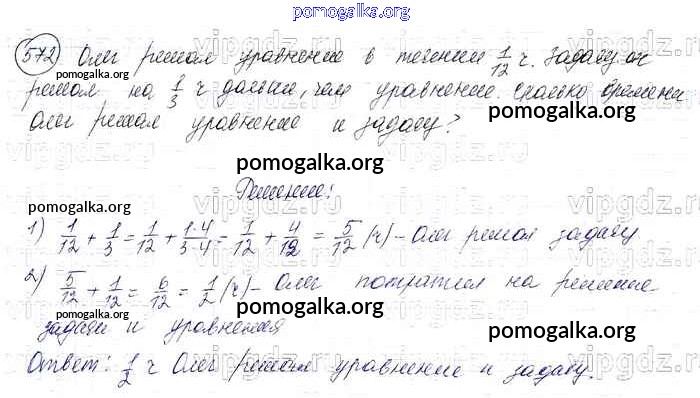 pomogalka.org
572 Олег решал уравнение в течении 1/12 ч. Задачу он
pomogalka.org
решал на 1/3 ч дольше, чем уравнение. Сколько времени
Олег решал уравнение и задачу?
pomogalka.org
pomogalka.org
Решение:
vipgdz.ru
pomogalka.org
1) 1/12 + 1/3 = 1/12 + 1·4/3·4 = 1/12 + 4/12 = 5/12 (ч) - Олег решал задачу
2) 5/12 + 1/12 = 6/12 = 1/2 (ч) - Олег потратил на решение
pomogalka.org
pomogalka.org
задачи и уравнения
pomogalka.org
Ответ: 1/2 ч Олег решал уравнение и задачу.
pomogalka.org